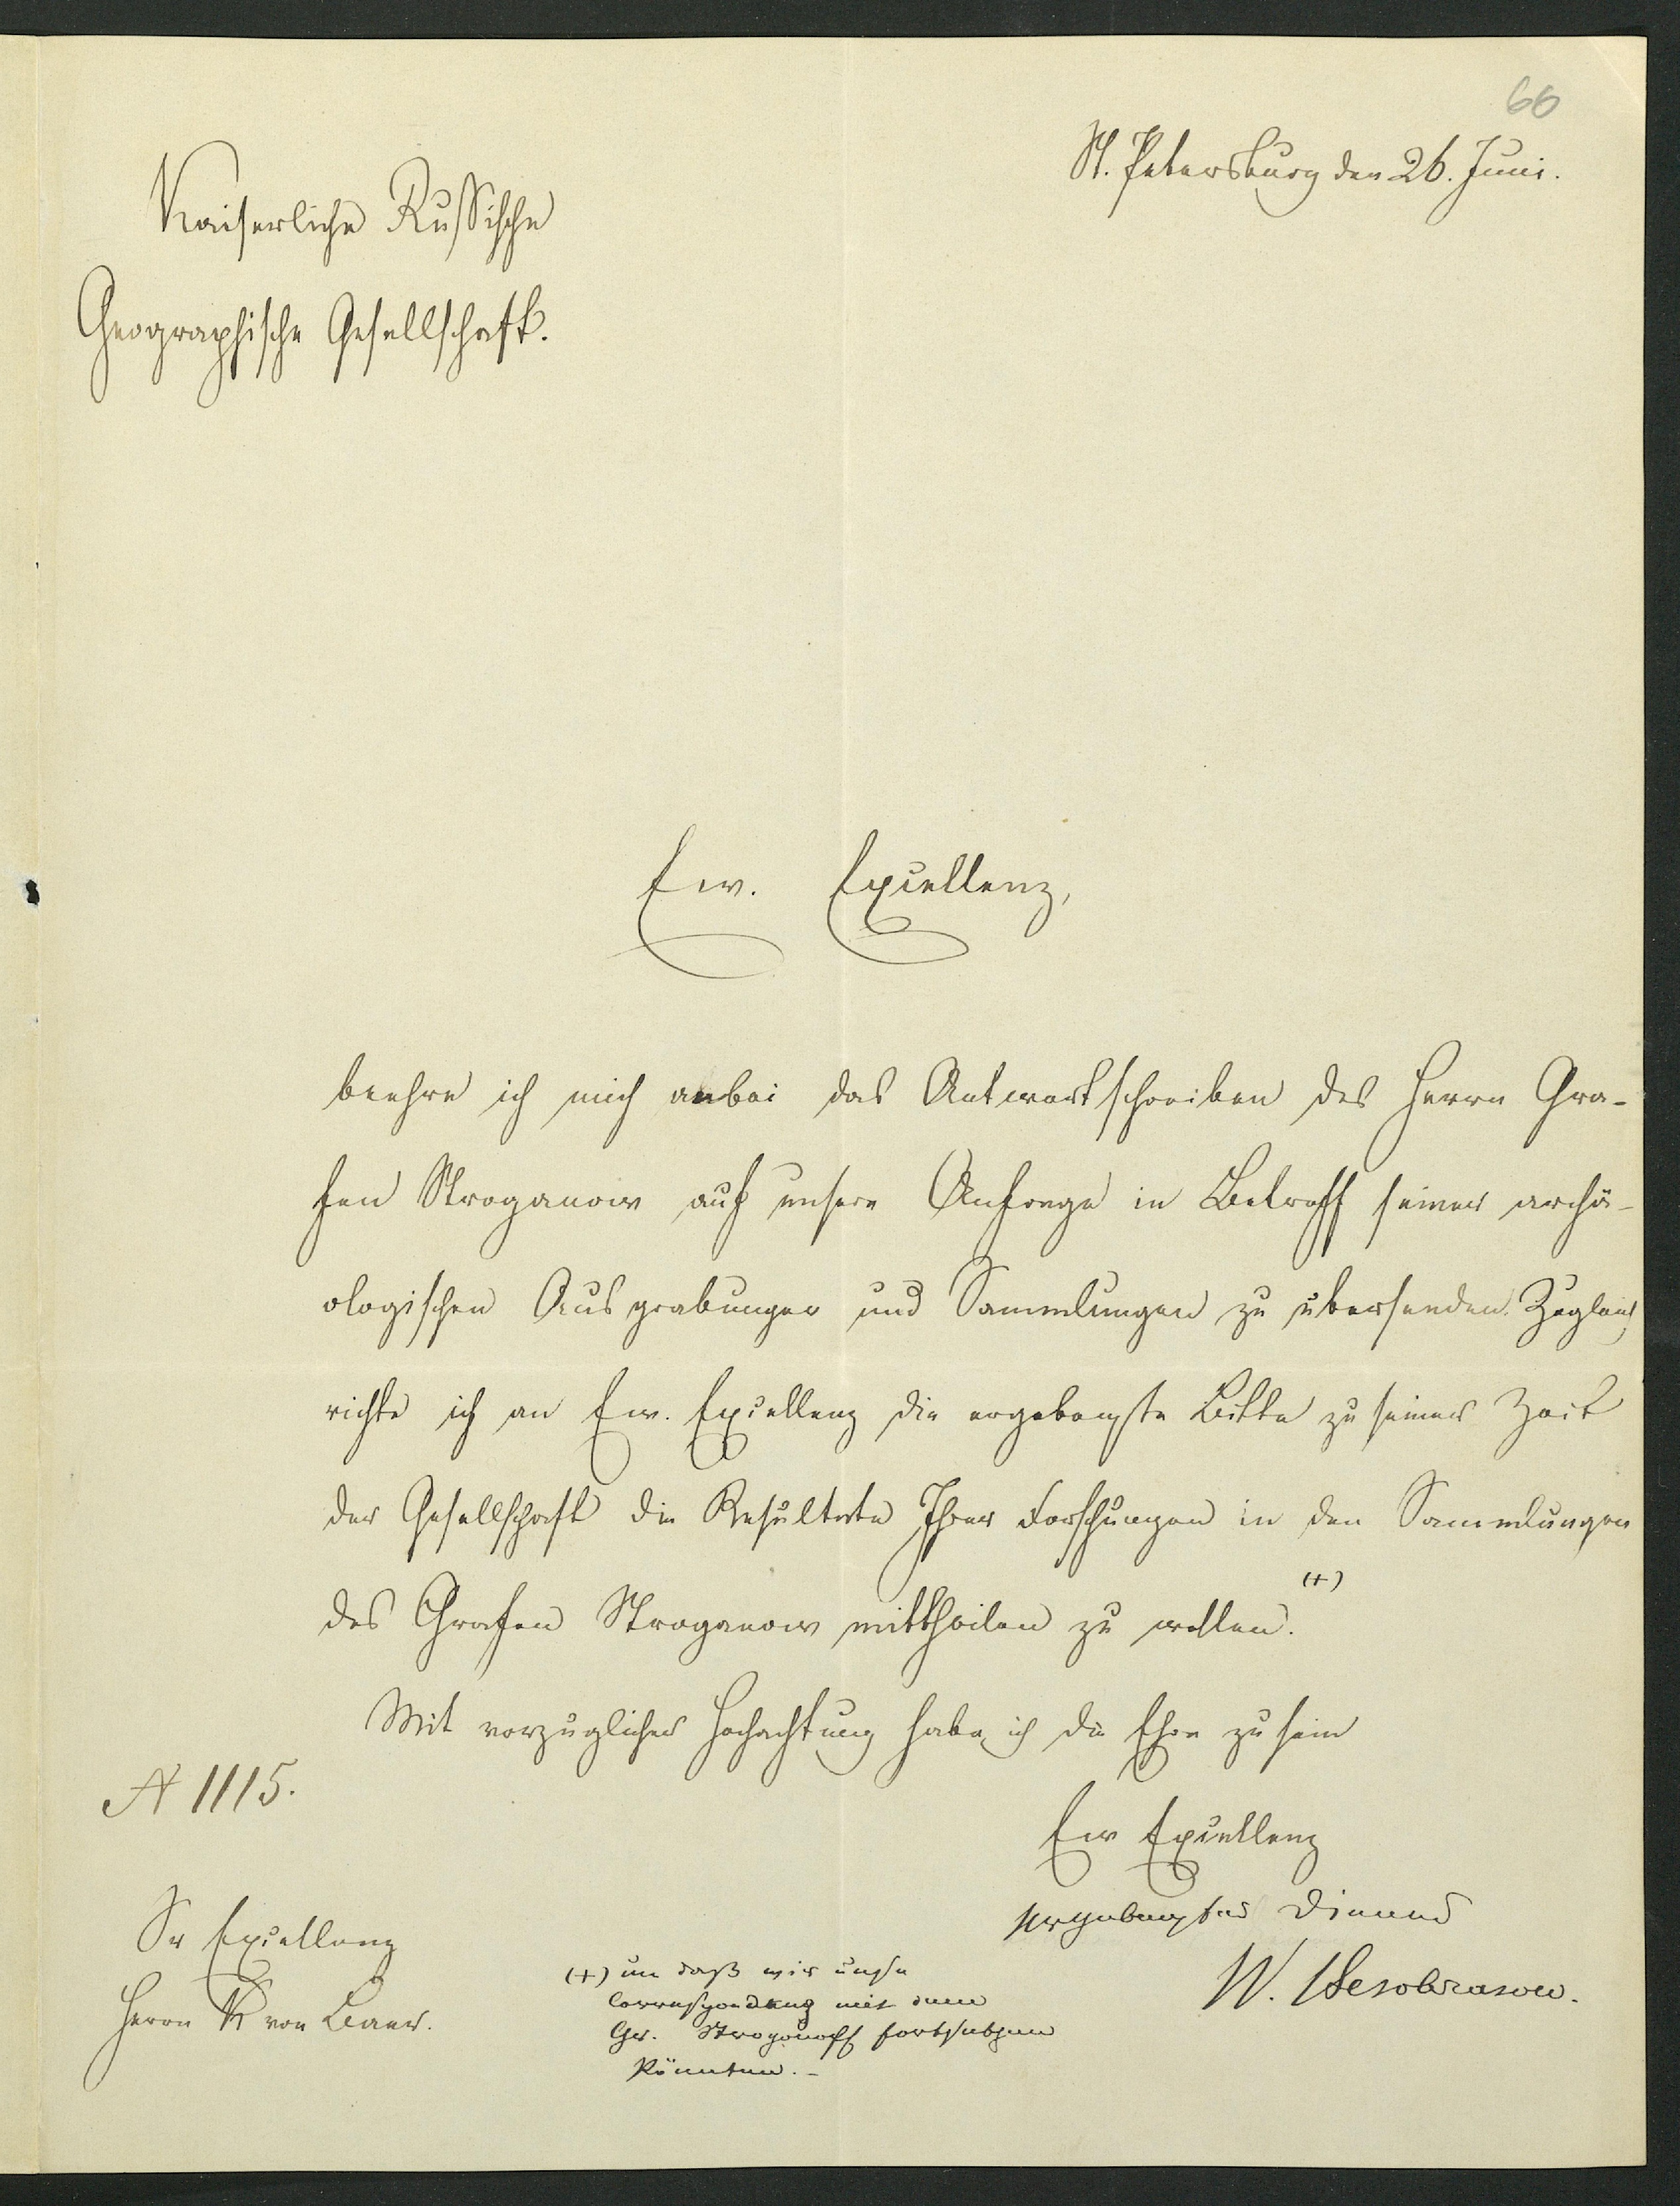 66
St. Petersburg den 26. Juni.
Kaiserliche Russische
Geographische Gesellschaft.
Ew. Excellenz,
beehre ich mich anbei das Antwortschreiben des Herrn Gra-
fen Stroganow auf unsere Anfrage in Betreff seiner archä-
ologischen Ausgrabungen und Sammlungen zu übersenden. Zugleich
richte ich an Ew. Excellenz die ergebenste Bitte zu seiner Zeit
der Gesellschaft die Resultate Ihrer Forschungen in den Sammlungen
des Grafen Stroganow mittheilen zu wollen. (+)
Mit vorzüglicher Hochachtung habe ich die Ehre zu sein
N 1115.
Ew Excellenz
ergebenster Diener
W. Besobrasow.
Sr Excellenz
Herrn K von Baer.
(+) um daß wir unsre
Correspondenz mit dem
Gr. Stroganoff fortsetzen
könnten. –